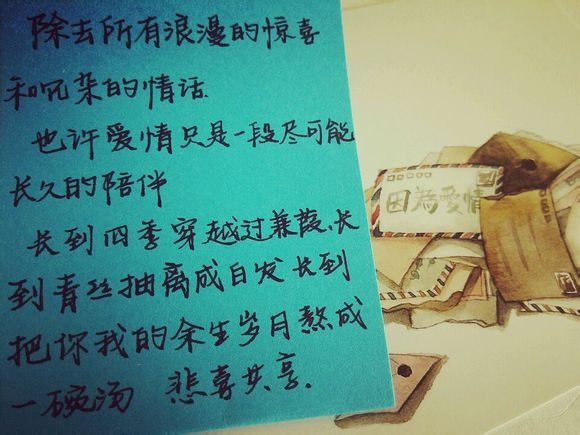 除去所有浪漫的惊喜
和冗杂的情话.
也许爱情只是一段尽可能
长久的陪伴
长到四季穿越过蒹葭、长
到青丝抽离成白发 长到
把你我的余生岁月熬成
一碗汤 悲喜共享.
因為愛情